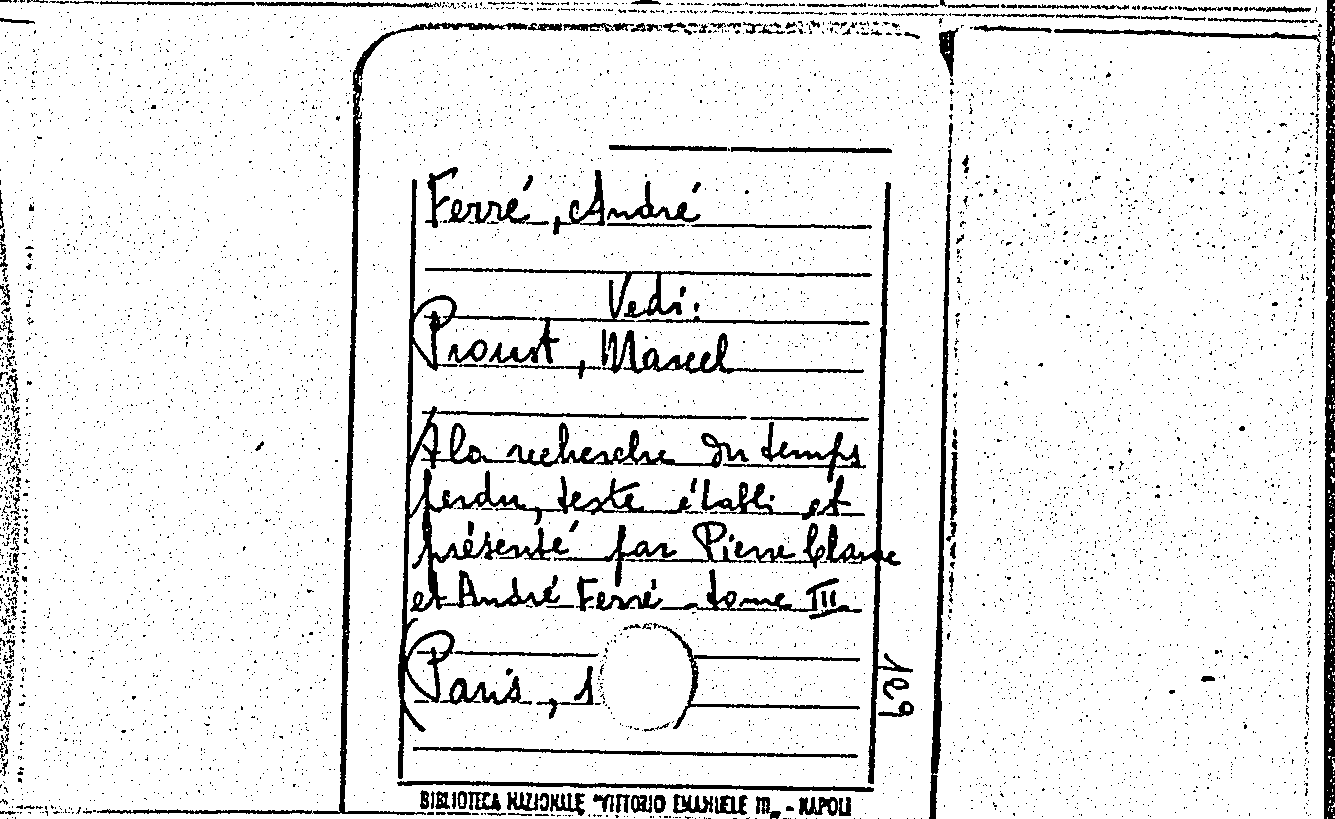 Ferré, André
Vedi:
Proust, Marcel
A la recherche du temps
perdu, texte établi et
présenté par Pierre Clarac
et André Ferré - tome III
(Paris, 1
BIBLIOTECA NAZIONALE "VITTORIO EMANUELE III„ - NAPOLI